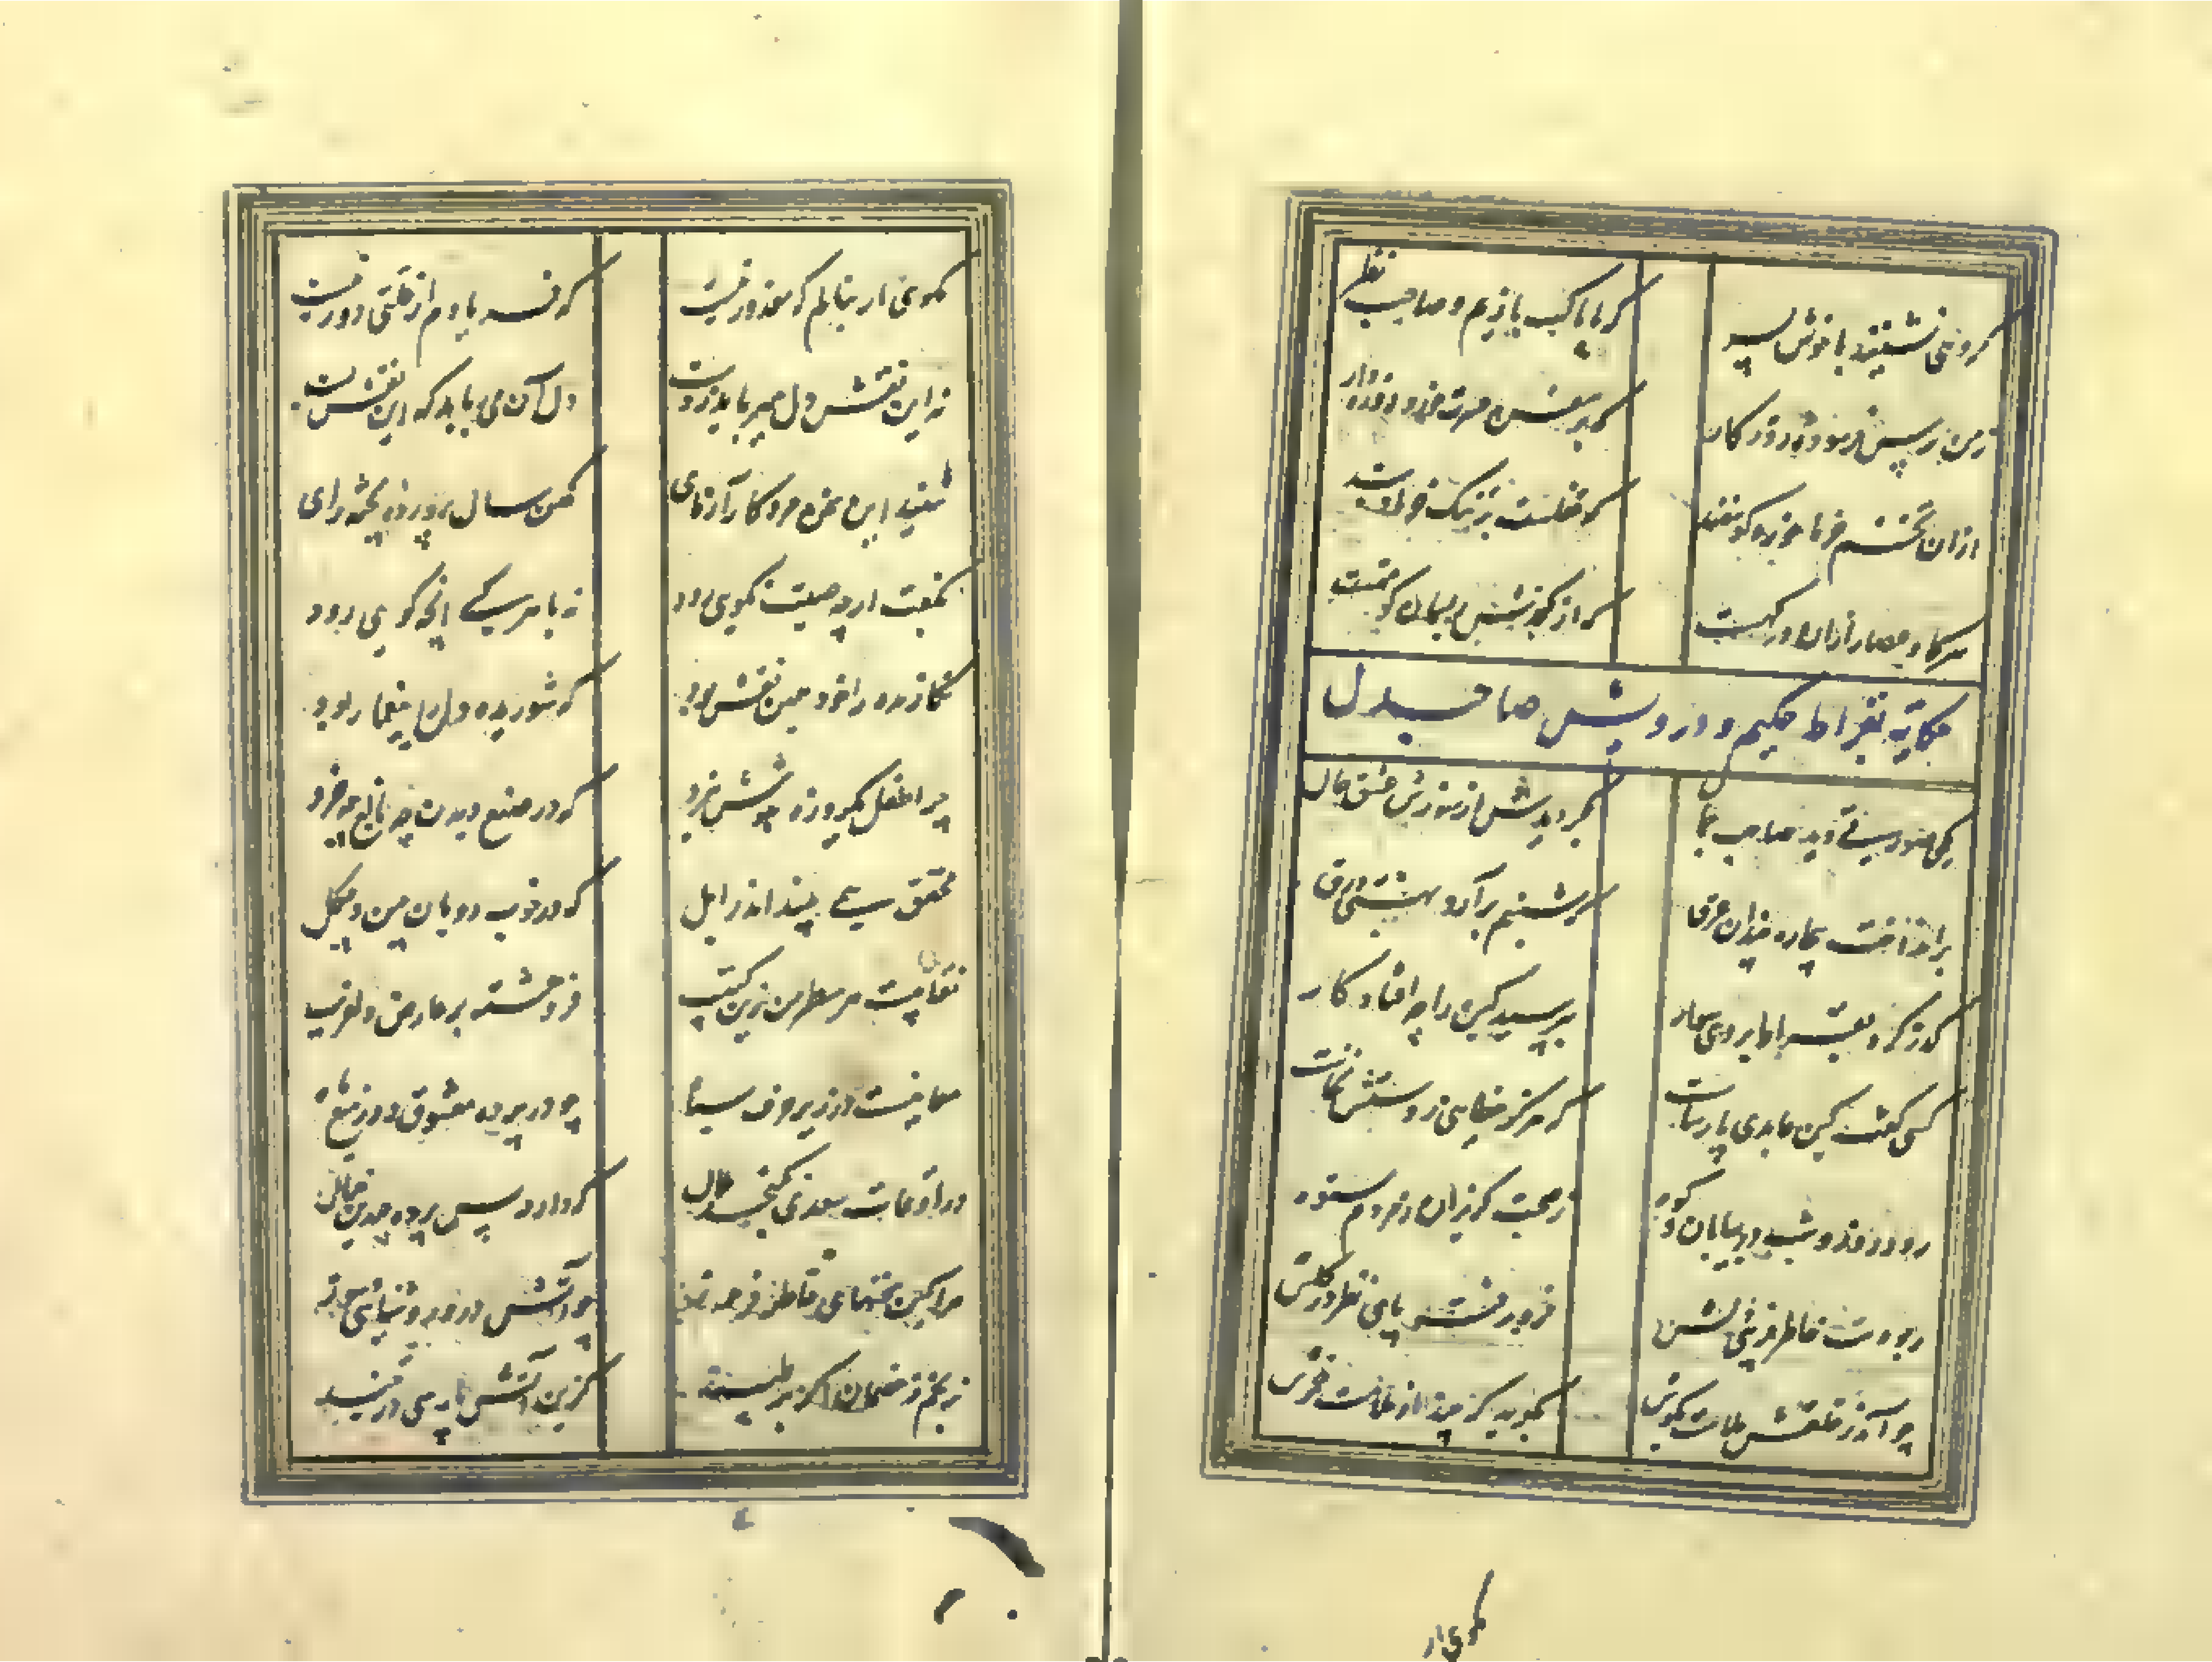 گروهی نشینند با خوش پسر
که ما پاکبازیم و صاحب نظر
ز من پرس فرسوده روزگار
که بر سفره حسرت خورد روزه دار
ازان تخم خرما خورد گوسفند
که قفلست بر تنگ خرما و بند
سر گاو عصار ازان در کهست
که از کنجدش ریسمان کوتهست
حکایة بقراط حکیم و درویش صاحبدل
یکی صورتی دید صاحب جمال
بگردیدش از شورش عشق حال
برانداخت بیچاره چندان عرق
که شبنم بر آرد بهشتی ورق
گذر کرد بقراط بر وی سوار
بپرسید کین را چه افتاد کار
کسی گفتش کین عابدی پارساست
که هرگز خطایی ز دستش نخاست
رود روز و شب در بیابان و کوه
ز صحبت گریزان ز مردم ستوه
ربودست خاطر فریبی دلش
فرو رفته پای نظر در گلش
چو آید ز خلقش ملامت بگوش
بگوید که چند از ملامت خموش
مگوی ار
مگوی ار بنالم که معذور نیست
که فریادم از علتی دور نیست
نه این نقش دل میرباید ز دست
دل آن می رباید که این نقش بست
شنید این سخن مرد کار آزمای
کهن سال پرورده پخته رای
بگفت ار چه صیت نکویی رود
نه با هر کسی انچه گویی رود
نگارنده را خود همین نقش بود
که شوریده دل را بیغما ربود
چرا طفل یکروزه هوشش نبرد
که در صنع دیدن چه بالغ چه خرد
محقق همی بیند اندر ابل
که در خوب رویان چین و چگل
نقابیست هر سطر من زین کتیب
فرو هشته بر عارض دلفریب
معانیست در زیر حرف سیاه
چو در پرده معشوق و در میغ ماه
در اوقات سعدی نگنجد ملال
که دارد پس پرده چندین جمال
مرا کین سخنهاست خاطر فروز
چو آتش درو روشنائی و سوز
نرنجم ز خصمان اگر بر طپند
کزین آتش پارسی در تبند